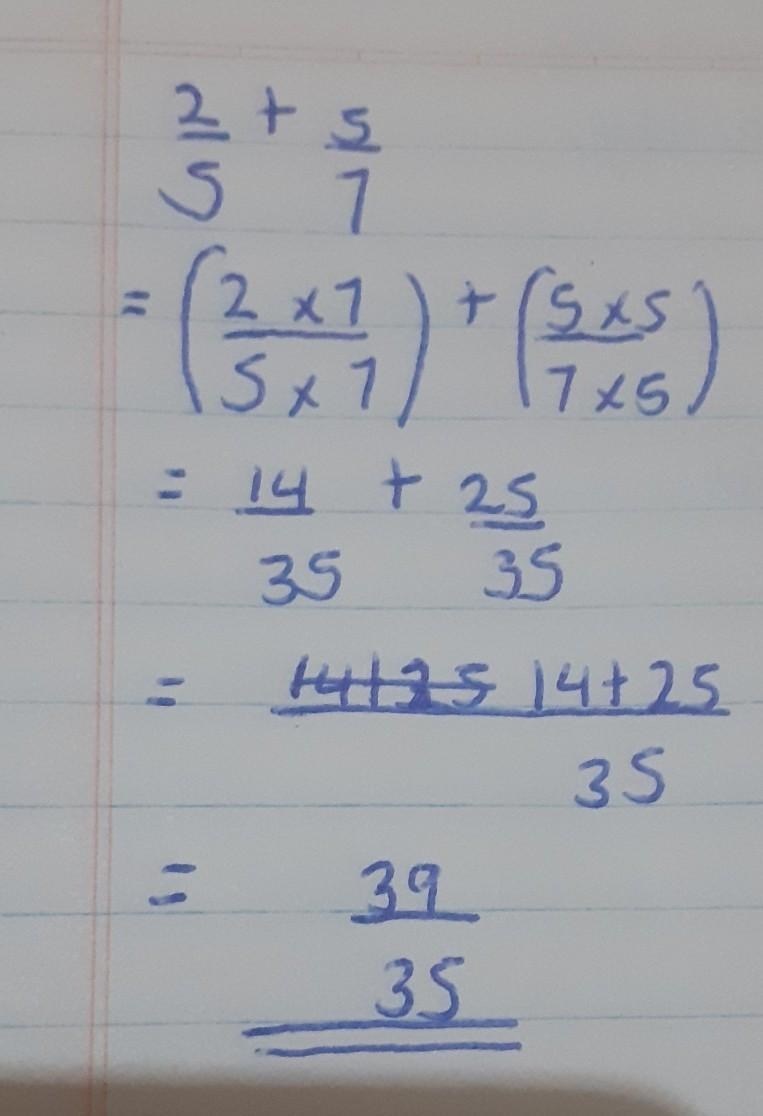 2/5 + 5/7
= (2 x 7 / 5 x 7) + (5 x 5 / 7 x 5)
= 14/35 + 25/35
= 14+25 14+25 / 35
= 39/35